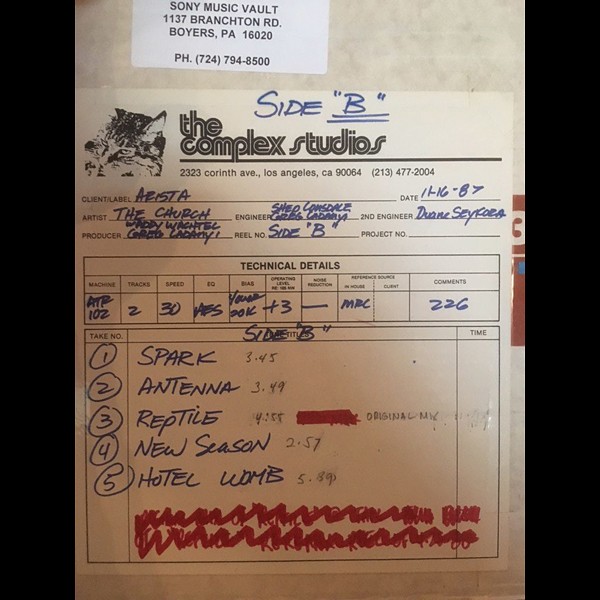 SONY MUSIC VAULT
1137 BRANCHTON RD.
BOYERS, PA 16020
PH. (724) 794-8500
SIDE "B"
the
complex studios
2323 corinth ave., los angeles, ca 90064 (213) 477-2004
CLIENT/LABEL ARISTA DATE 11-16-87
ARTIST THE CHURCH ENGINEER SHEP LONSDALE GREG LADANYI 2ND ENGINEER Duane Seykora
PRODUCER WADDY WACHTEL GREG LADANYI REEL NO. SIDE "B" PROJECT NO.
TECHNICAL DETAILS
MACHINE TRACKS SPEED EQ BIAS OPERATING LEVEL RE 185 NW NOISE REDUCTION REFERENCE SOURCE IN HOUSE CLIENT COMMENTS
ATR 102 2 30 AES 20K +3 — MRL 226
TAKE NO. SIDE "B" TIME
1 SPARK 3.45
2 ANTENNA 3.49
3 REPTILE 4:55 ORIGINAL MIX
4 NEW SEASON 2.57
5 HOTEL WOMB 5.39